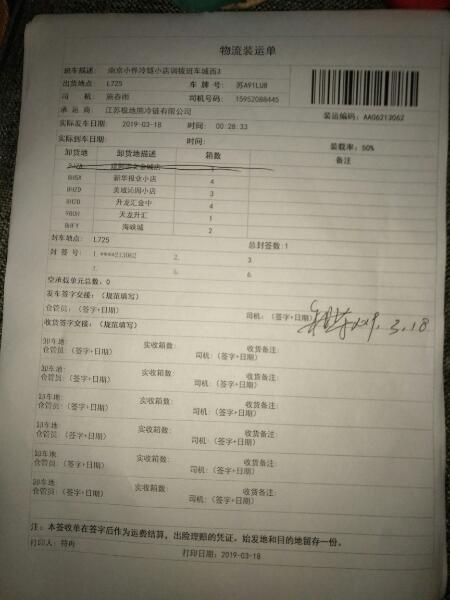 物流装运单
班车描述: 南京小件冷链小店调拨班车城西3
出货地点: L725 车 牌 号: 苏A91LU8
司 机: 施春雨 司机号码: 15952088445
承 运 商: 江苏极地熊冷链有限公司
装运编码: AA06213062
实际发车日期: 2019-03-18 时间: 00:28:33
实际到车日期: 时间: 装载率: 50%
卸货地 卸货地描述 箱数 备注
新华报业小店 4
BHZD 美域沁园小店 3
升龙汇金中 4
天龙升汇 1
BHFY 海峡城 2
封车地点: L725 总封签数:1
封 签 号: 1.****213062 2. 3.
空承载单元总数: 0
发车签字交接: (规范填写)
仓管员: (签字+日期) 司机: (签字+日期) 3.18
收货签字交接: (规范填写)
卸车地 实收箱数: 收货备注:
仓管员: (签字+日期) 司机: (签字+日期)
卸车地 实收箱数: 收货备注:
仓管员: (签字+日期) 司机: (签字+日期)
卸车地 实收箱数: 收货备注:
仓管员: (签字+日期) 司机: (签字+日期)
卸车地 实收箱数: 收货备注:
仓管员: (签字+日期) 司机: (签字+日期)
卸车地 实收箱数: 收货备注:
仓管员: (签字+日期) 司机: (签字+日期)
卸车地 实收箱数: 收货备注:
仓管员: (签字+日期) 司机: (签字+日期)
注: 本签收单在签字后作为运费结算, 出险理赔的凭证。始发地和目的地留存一份。
打印人: 符冉
打印日期: 2019-03-18